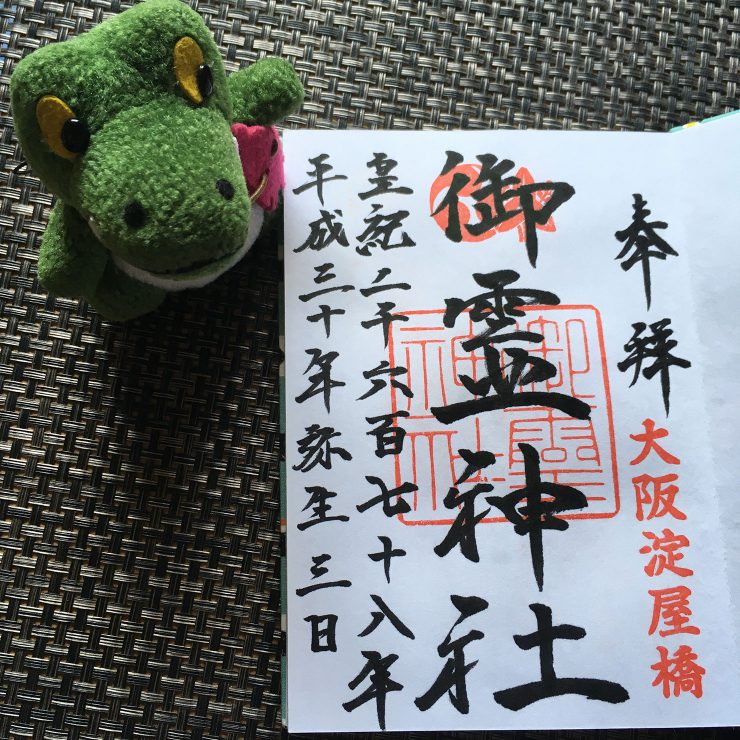 奉拝
大阪淀屋橋
御霊神社
御霊神社
皇紀二千六百七十八年
平成三十年弥生三日